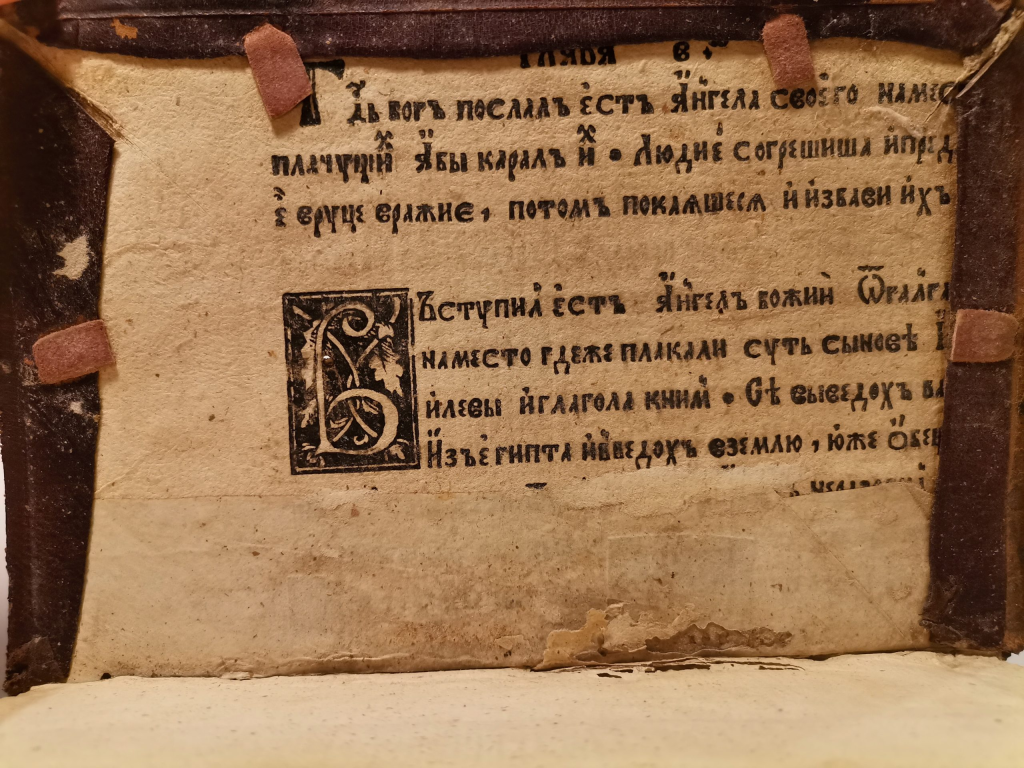 глава в҃
Гдь богъ послалъ є҆стъ А҆́нгела своє҆го намес
плачущиⷯ А҆бы каралъ и҆ⷯ • Людиє҆ согрешиша и҆пред
є҆ вруце вражие, потомъ покаꙗшесѧ и҆ и҆збави и҆хъ
Въступил є҆стъ А҆́нгелъ божии Ѿгалга
наместо гдеже плакали суть сынове
и҆левы и҆глагола кним • Се выведохъ ва
И҆зъ є҆гипта и҆введохъ вземлю, ю҆же ѻ҆бещ